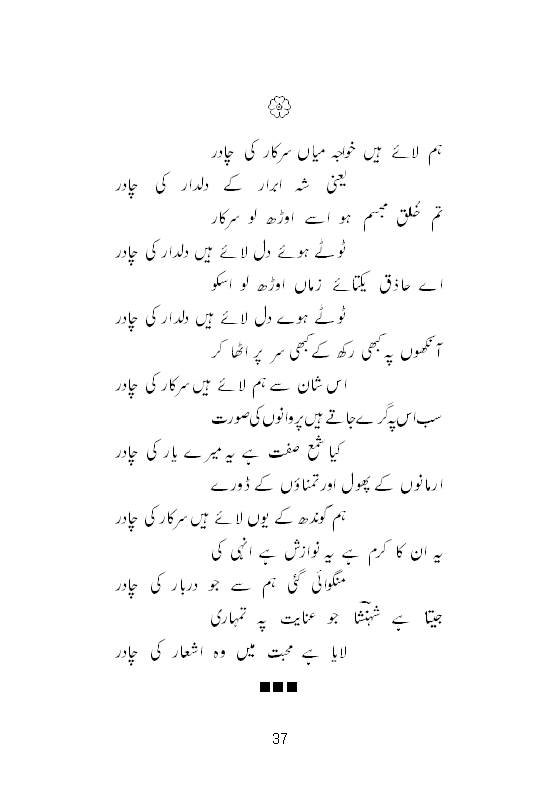 ہم لائے ہیں خواجہ میاں سرکار کی چادر
یعنی شہ ابرار کے دلدار کی چادر
تم خُلق مجسم ہو اسے اوڑھ لو سرکار
ٹوٹے ہوئے دل لائے ہیں دلدار کی چادر
اے حاذق یکتائے زماں اوڑھ لو اسکو
ٹوٹے ہوے دل لائے ہیں دلدار کی چادر
آنکھوں پہ کبھی رکھ کے کبھی سر پر اٹھا کر
اس شان سے ہم لائے ہیں سرکار کی چادر
سب اس پہ گرے جاتے ہیں پروانوں کی صورت
کیا شمع صفت ہے یہ میرے یار کی چادر
ارمانوں کے پھول اور تمناؤں کے ڈورے
ہم گوندھ کے یوں لائے ہیں سرکار کی چادر
یہ ان کا کرم ہے یہ نوازش ہے انہی کی
منگوائی گئی ہم سے جو دربار کی چادر
جیتا ہے شہنشؔا جو عنایت پہ تمہاری
لایا ہے محبت میں وہ اشعار کی چادر
37